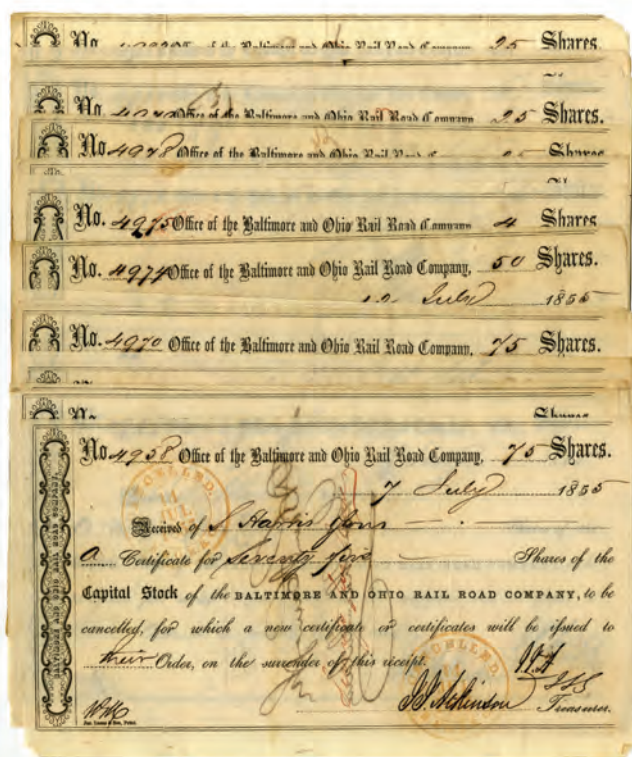 No. Office of the Baltimore and Ohio Rail Road Company 25 Shares.
No. Office of the Baltimore and Ohio Rail Road Company 25 Shares.
No 4978 Office of the Baltimore and Ohio Rail Road Shares
No. 4975 Office of the Baltimore and Ohio Rail Road Company 4 Shares
No. 4974 Office of the Baltimore and Ohio Rail Road Company, 50 Shares.
July 1855
No. 4970 Office of the Baltimore and Ohio Rail Road Company, 75 Shares.
No. Shares
No 4958 Office of the Baltimore and Ohio Rail Road Company, 75 Shares.
7 July 1855
Received of S Harris & Sons
a Certificate for Seventy five Shares of the
Capital Stock of the BALTIMORE AND OHIO RAIL ROAD COMPANY, to be
cancelled, for which a new certificate or certificates will be issued to
their Order, on the surrender of this receipt.
J. J. Atkinson Treasurer.